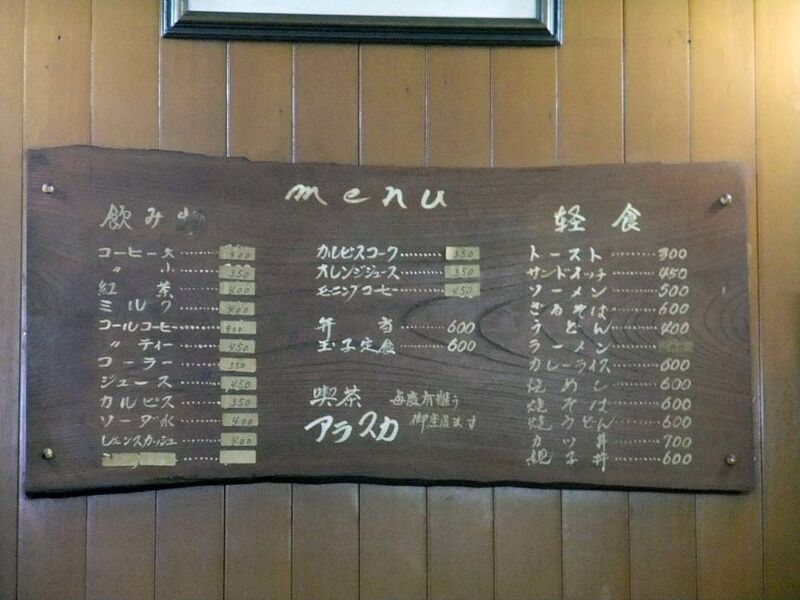 menu
飲み物
コーヒー大 ······· 400
〃 小 ······· 350
紅 茶 ······· 400
ミルク ······· 400
コールコーヒー ······ 400
〃 ティー ······ 450
コーラー ······· 350
ジュース ······· 450
カルピス ······· 350
ソーダ水 ······· 400
レモンスカッシュ ····· 400
カルピスコーク ······· 350
オレンジジュース ······· 350
モーニングコーヒー ······· 450
弁 当 ······· 600
玉子定食 ······· 600
喫茶
アラスカ
毎度有難う
御座居ます
軽 食
トースト ······· 300
サンドイッチ ······ 450
ソーメン ······· 500
ざるそば ······· 600
うどん ······· 400
ラーメン ·······
カレーライス ······ 600
焼めし ······· 600
焼そば ······· 600
焼うどん ······· 600
カツ丼 ······· 700
親子丼 ······· 600